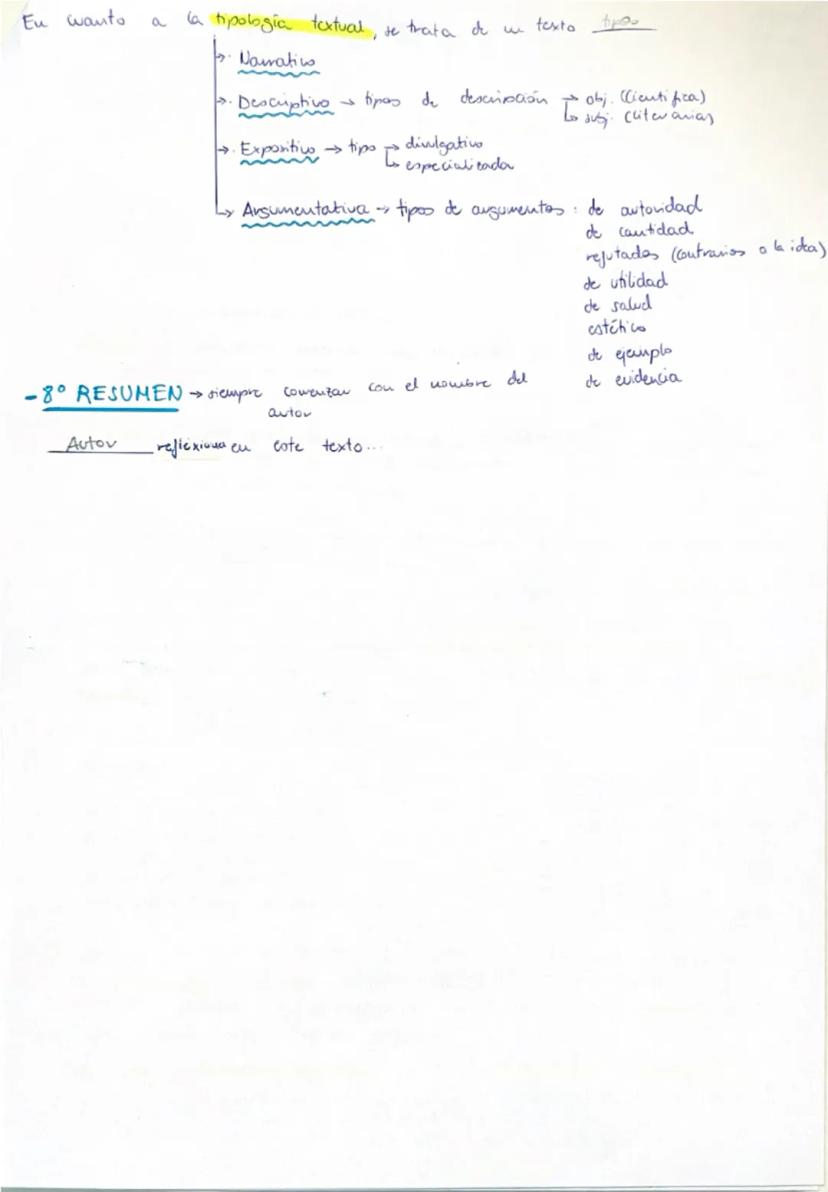 En cuanto a la tipología textual, se trata de un texto tipos
→. Narrativo
→. Descriptivo → tipos de descripción → obj. (científica)
↳ subj. (literarias)
→. Expositivo → tipo → divulgativo
↳ especializada
↳ Argumentativa → tipos de argumentos : de autoridad
de cantidad
refutados (contrarios a la idea)
de utilidad
de salud
estético
de ejemplo
de evidencia
- 8º RESUMEN → siempre comenzar con el nombre del
autor
Autor reflexiona en este texto...